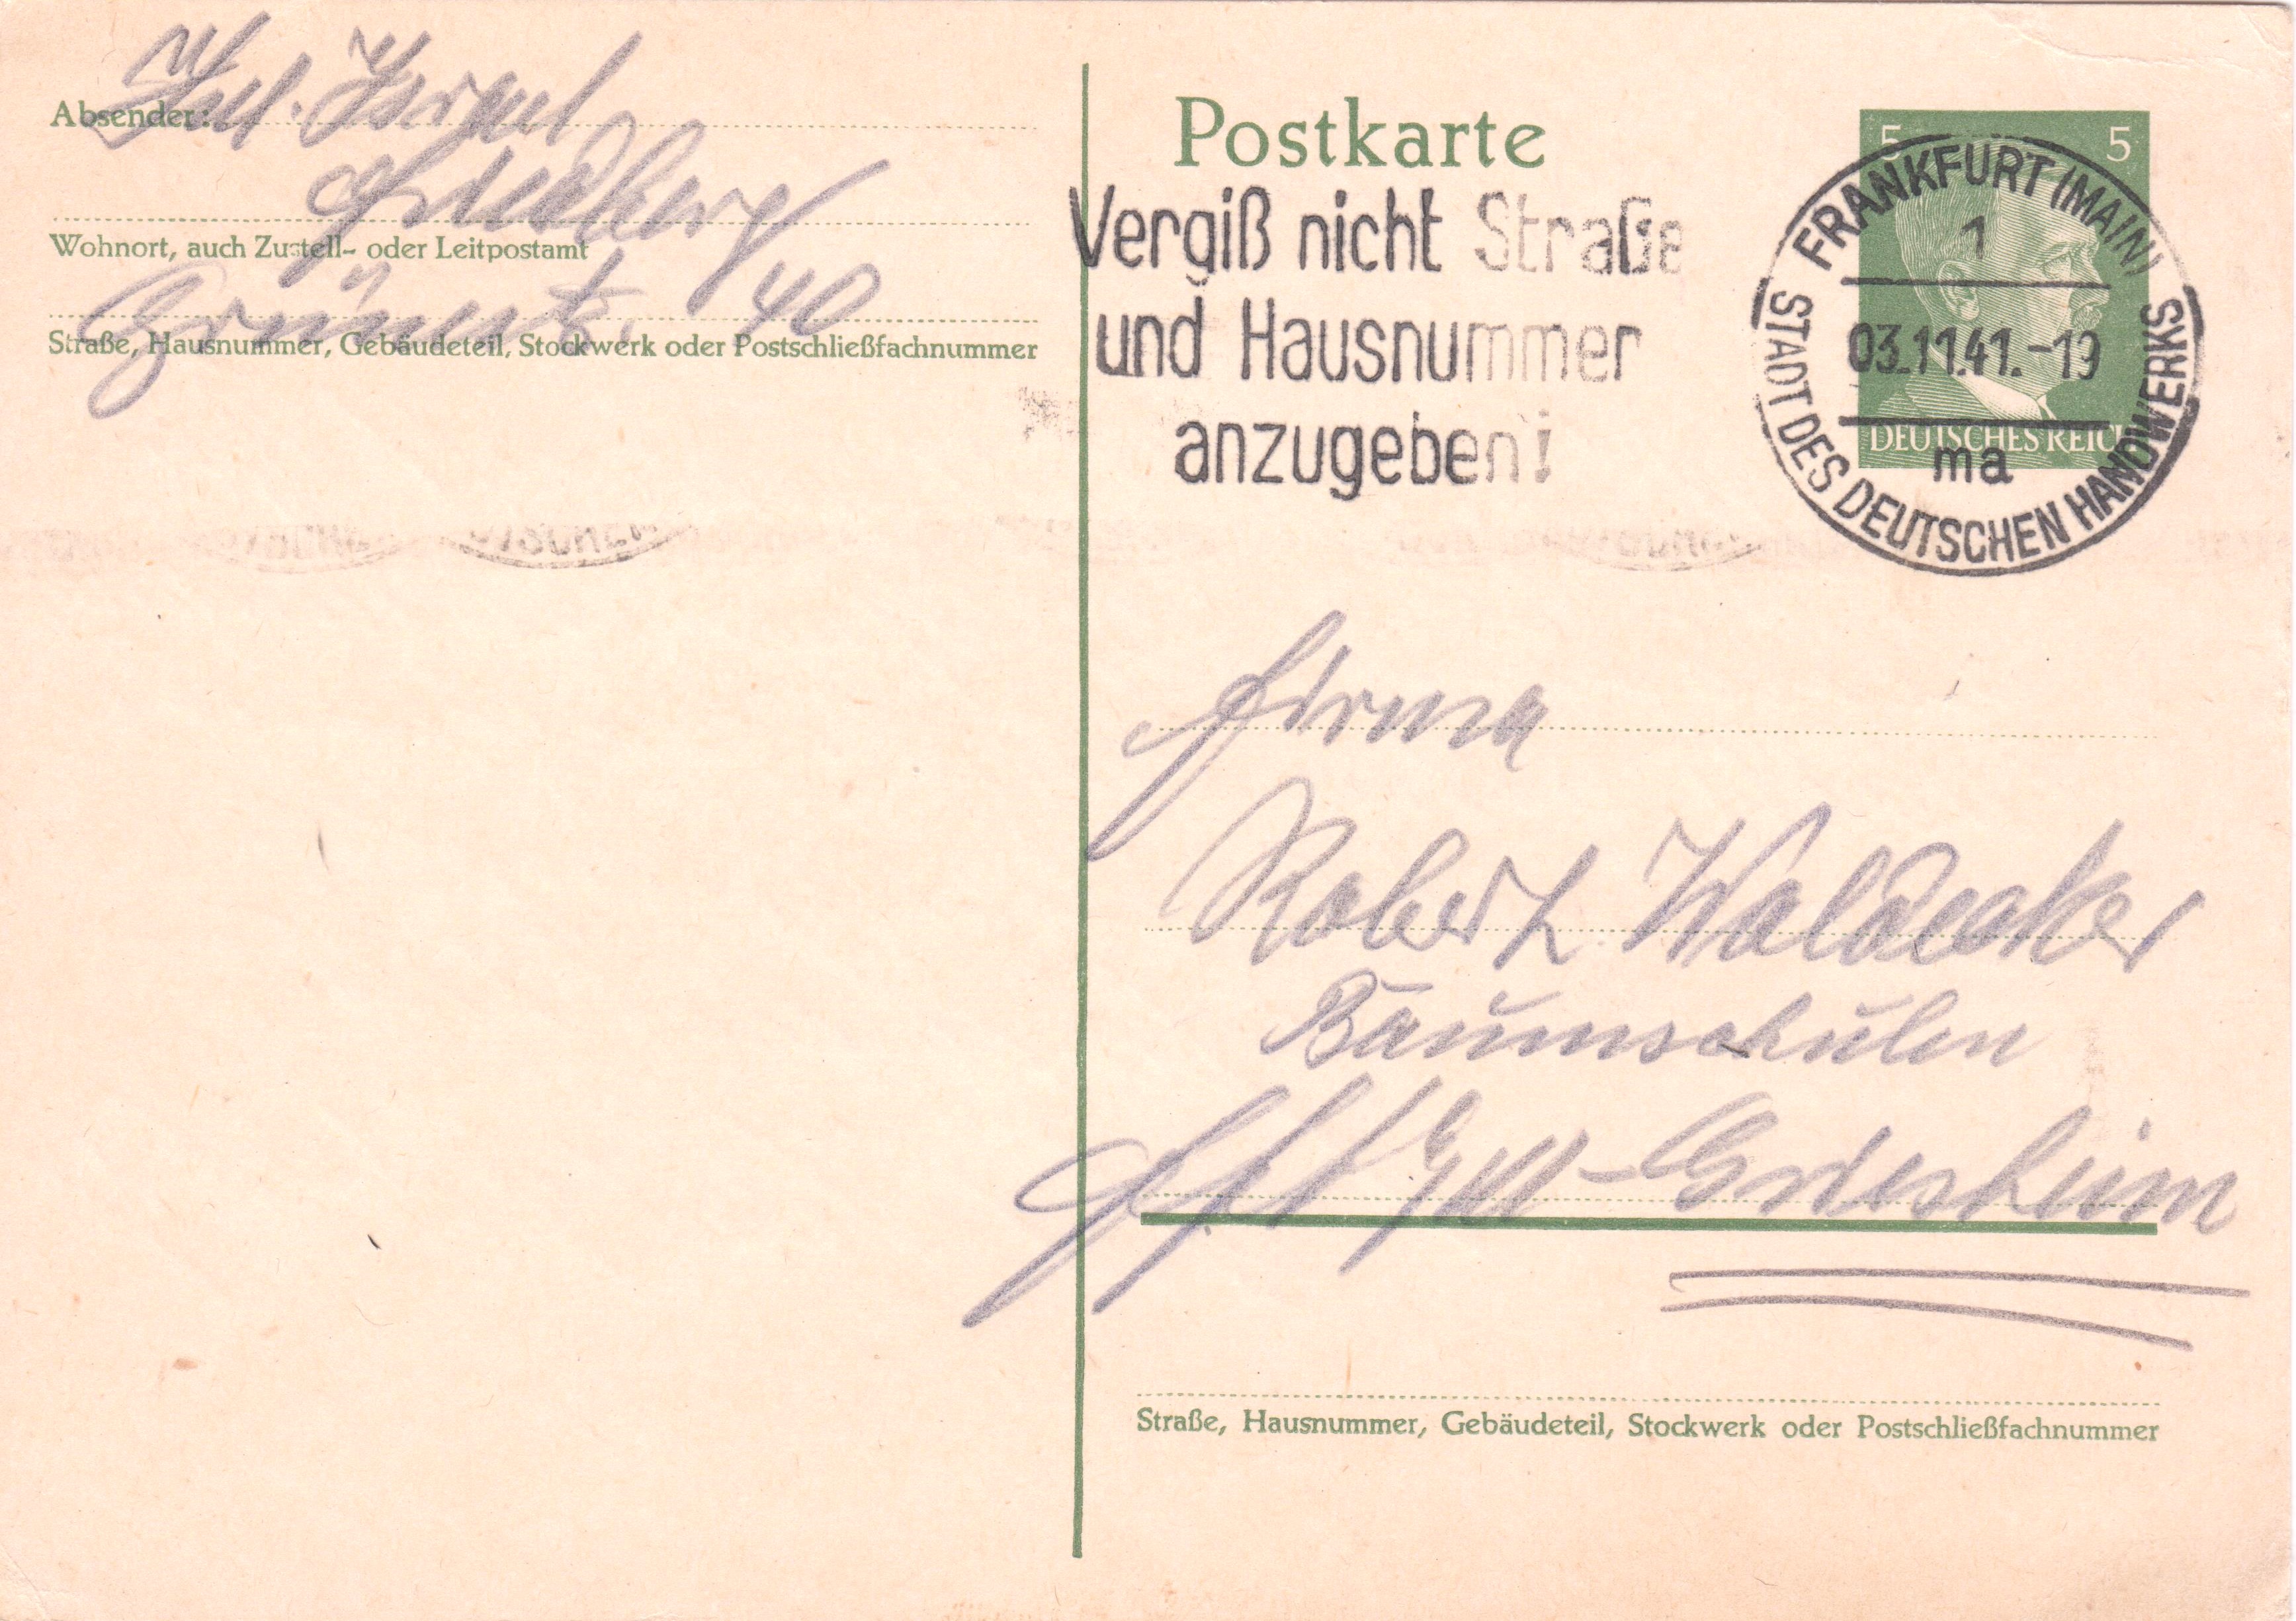 Absender:
Jul. Israel
Friedberg
Wohnort, auch Zustell- oder Leitpostamt
Grünestr. 40
Straße, Hausnummer, Gebäudeteil, Stockwerk oder Postschließfachnummer
Postkarte
5 5
DEUTSCHES REICH
Vergiß nicht Straße
und Hausnummer
anzugeben!
FRANKFURT (MAIN)
1
03.11.41.-19
ma
STADT DES DEUTSCHEN HANDWERKS
Firma
Robert Waldecker
Baumschulen
Ffft a/M - Griesheim
Straße, Hausnummer, Gebäudeteil, Stockwerk oder Postschließfachnummer